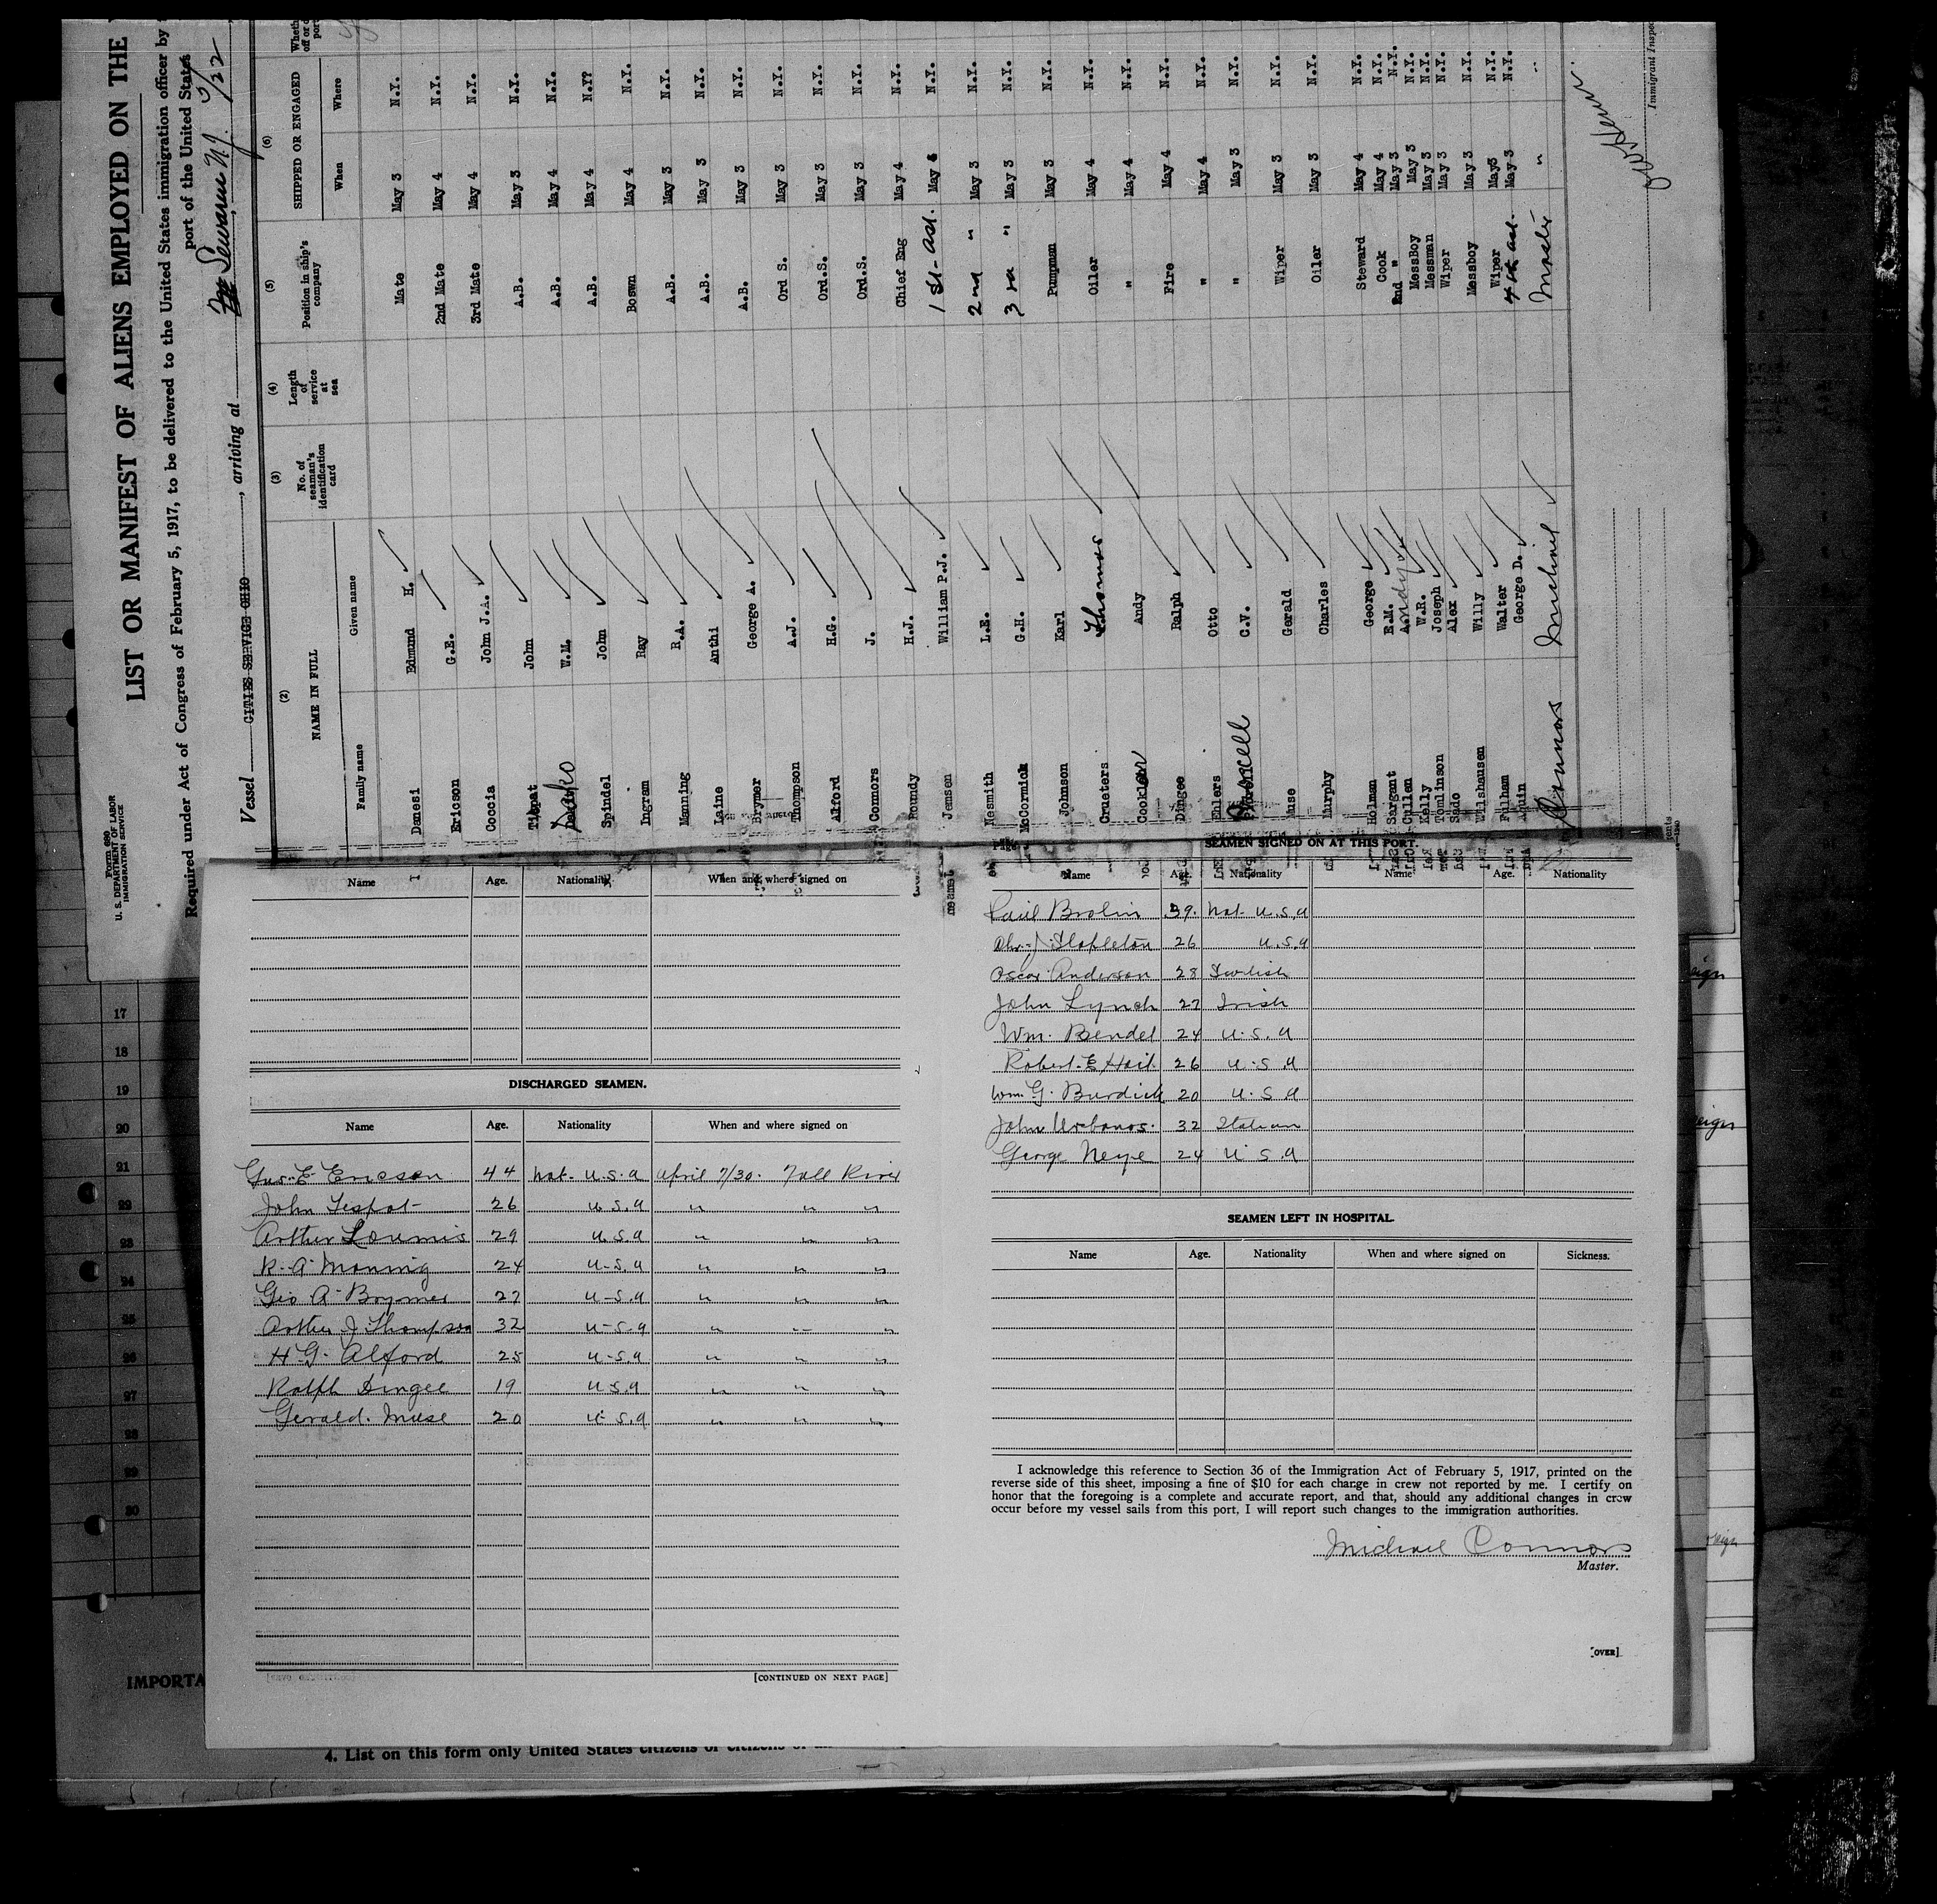 Form 680
U. S. DEPARTMENT OF LABOR
IMMIGRATION SERVICE
LIST OR MANIFEST OF ALIENS EMPLOYED ON THE
Required under Act of Congress of February 5, 1917, to be delivered to the United States immigration officer by
port of the United States
Vessel CITIES SERVICE OHIO, arriving at Sewaren N.J. 5/22
(2) (3) (4) (5) (6)
NAME IN FULL No. of seaman's identification card Length of service at sea Position in ship's company SHIPPED OR ENGAGED
Family name Given name When Where
Danesi Edmund H. Mate May 3 N.Y.
Ericson G.E. 2nd Mate May 4 N.Y.
Coccia John J.A. 3rd Mate May 4 N.Y.
John A.B. May 3 N.Y.
W.M. A.B. May 4 N.Y.
Spindel John A.B. May 4 N.Y?
Ingram Ray Boswn May 4 N.Y.
Manning R.A. A.B. May 3 N.Y.
Laine Anthi A.B. May 3 N.Y.
Brymer George A. A.B. May 3 N.Y.
Thompson A.J. Ord S. May 3 N.Y.
Alford H.G. Ord.S. May 3 N.Y.
Connors J. Ord.S. May 3 N.Y.
Roundy H.J. Chief Eng May 4 N.Y.
Jensen William P.J. 1st-ast. May N.Y.
Nesmith L.E. 2nd " May 3 N.Y.
McCormick G.H. 3rd " May 3 N.Y.
Johnson Karl Pumpman May 3 N.Y.
Grueters Thomas Oiler May 4 N.Y.
Andy " May 4 N.Y.
Dingee Ralph Fire May 4 N.Y.
Ehlers Otto " May 4 N.Y.
C.V. " May 3 N.Y.
Muse Gerald Wiper May 3 N.Y.
Murphy Charles Oiler May 3 N.Y.
Holman George Steward May 4 N.Y.
Sargent E.M. Cook May 4 N.Y.
Cullen 2nd " May 3 N.Y.
Kelly W.R. MessBoy May 3 N.Y.
Tomlinson Joseph Messman May 3 N.Y.
Sado Alex Wiper May 3 N.Y.
Wilshausen Willy Messboy May 3 N.Y.
Fulham Walter Wiper May 3 N.Y.
George D. 4th ast. May 3 N.Y.
Connors Michael Master " "
Immigrant Inspec
Name Age. Nationality When and where signed on
DISCHARGED SEAMEN.
Name Age. Nationality When and where signed on
Gus. E. Ericson 44 Nat. U.S.A April 7/30. Fall River
John Tespot 26 U.S.A " " "
Arthur Loumis 29 U.S.A " " "
R. A. Manning 24 U.S.A " " "
Geo A. Brymer 27 U.S.A " " "
Arthur J Thompson 32 U.S.A " " "
H G. Alford 25 U.S.A " " "
Ralph Dingee 19 U.S.A " " "
Gerald. Muse 20 U.S.A " " "
[CONTINUED ON NEXT PAGE]
SEAMEN SIGNED ON AT THIS PORT.
Name Age. Nationality Name Age. Nationality
Brolin 39. Nat. U.S.A
Stapleton 26 U.S.A
Oscar Anderson 28 Swedish
John Lynch 27 Irish
Wm. Bendel 24 U.S.A
Robert. E Hail. 26 U.S.A
Wm. G. Burdick 20 U.S.A
John Urbanos. 32 Italian
George Neye 24 U S A
SEAMEN LEFT IN HOSPITAL.
Name Age. Nationality When and where signed on Sickness.
I acknowledge this reference to Section 36 of the Immigration Act of February 5, 1917, printed on the
reverse side of this sheet, imposing a fine of $10 for each change in crew not reported by me. I certify on
honor that the foregoing is a complete and accurate report, and that, should any additional changes in crew
occur before my vessel sails from this port, I will report such changes to the immigration authorities.
Michael Connors
Master.
[OVER]
17
18
19
20
21
22
23
24
25
26
27
28
29
30
IMPORTA
4. List on this form only United States citizens or citizens of